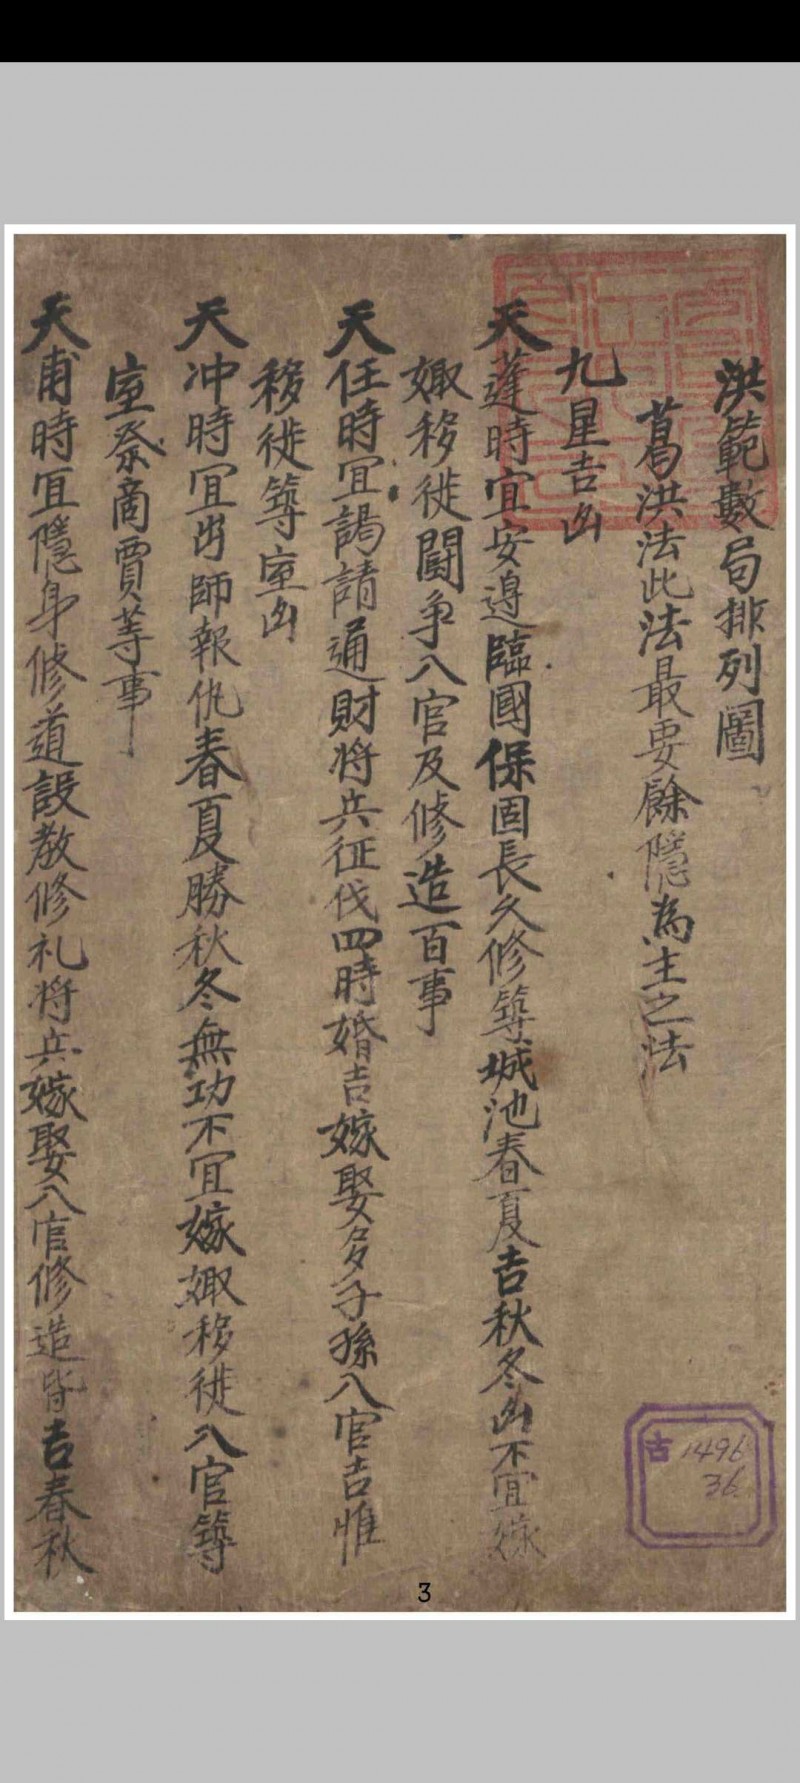 洪範數局排列圖
葛洪法此法最要餘隱為主之法
九星吉凶
天蓬時宜安邉臨國保固長久修築城池春夏吉秋冬凶不宜嫁
娵移徙鬪争入官及修造百事
天任時宜謁請通財将兵征伐四時婚吉嫁娶多子孫入官吉惟
移徙築室凶
天冲時宜出師報仇春夏勝秋冬無功不宜嫁娵移徙入官築
室祭商賈䓁事
天甫時宜隱身修道設教修礼将兵嫁娶入官修造皆吉春秋
吉 1496
36
3